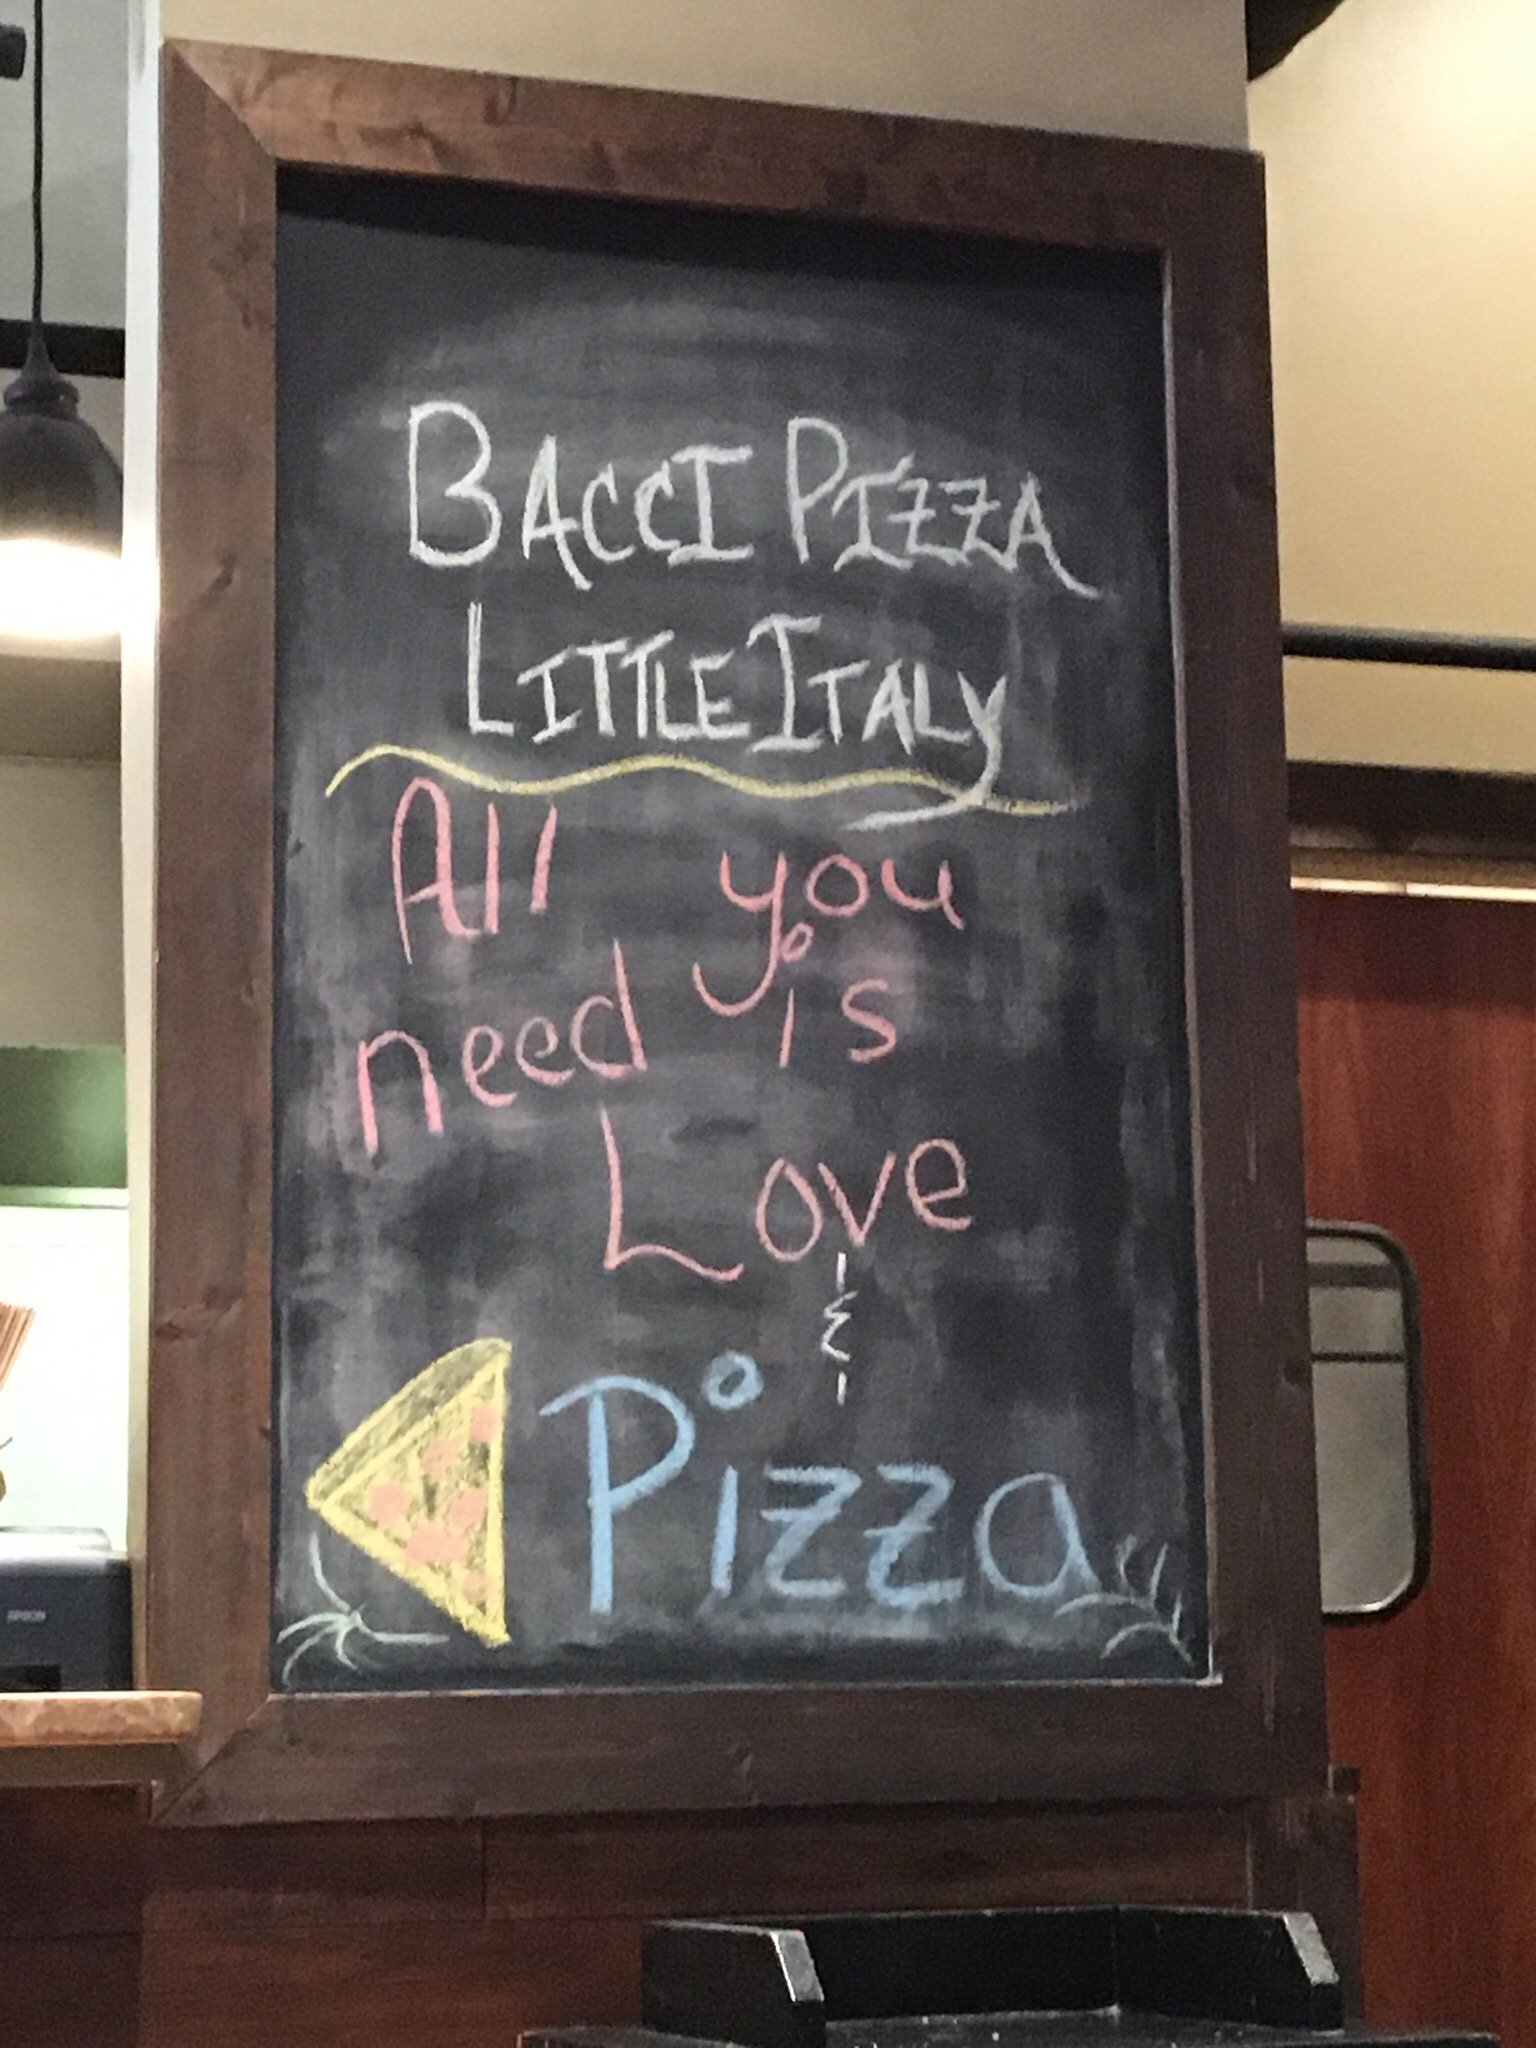 BACCI PIZZA
LITTLE ITALY
All you
need is
Love
&
Pizza
EPSON